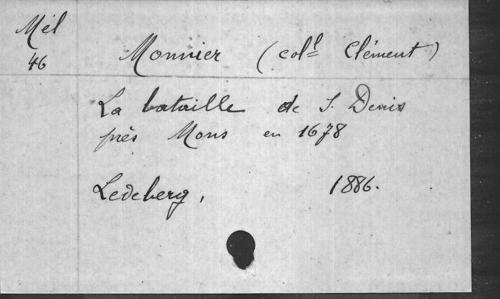 Mél
46
Monnier (col.l Clément)
La bataille de S. Denis
près Mons en 1678
Ledeberg, 1886.